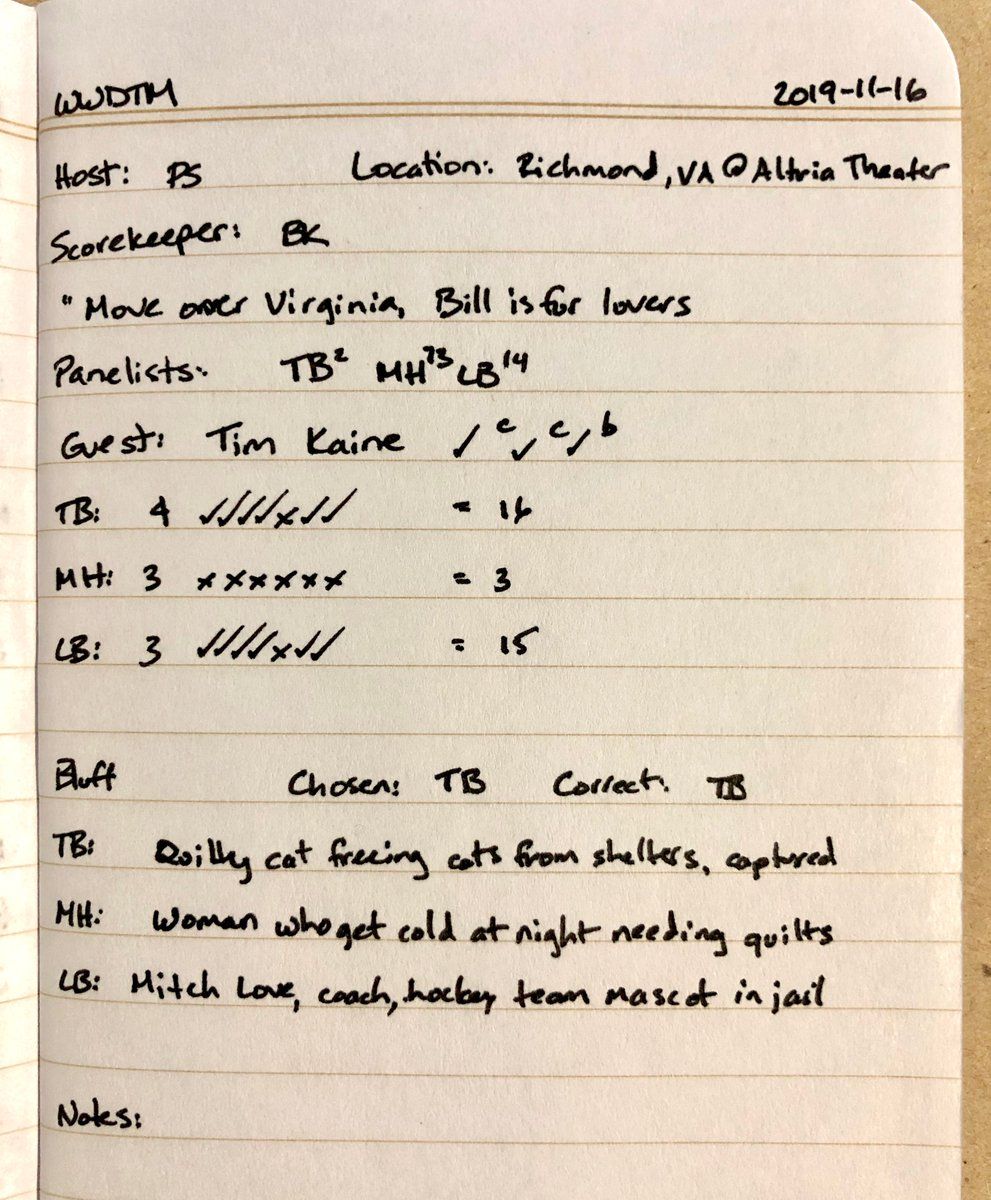 WWDTM 2019-11-16
Host: PS Location: Richmond, VA @ Altria Theater
Scorekeeper: BK
"Move over Virginia, Bill is for lovers
Panelists: TB² MH⁷³ LB¹⁴
Guest: Tim Kaine ✓ᶜ✓ᶜ✓ᵇ
TB: 4 ✓✓✓✓x✓✓ = 16
MH: 3 xxxxxx = 3
LB: 3 ✓✓✓✓x✓✓ = 15
Bluff Chosen: TB Correct: TB
TB: Quilty cat freeing cats from shelters, captured
MH: Woman who get cold at night needing quilts
LB: Mitch Love, coach, hockey team mascot in jail
Notes: